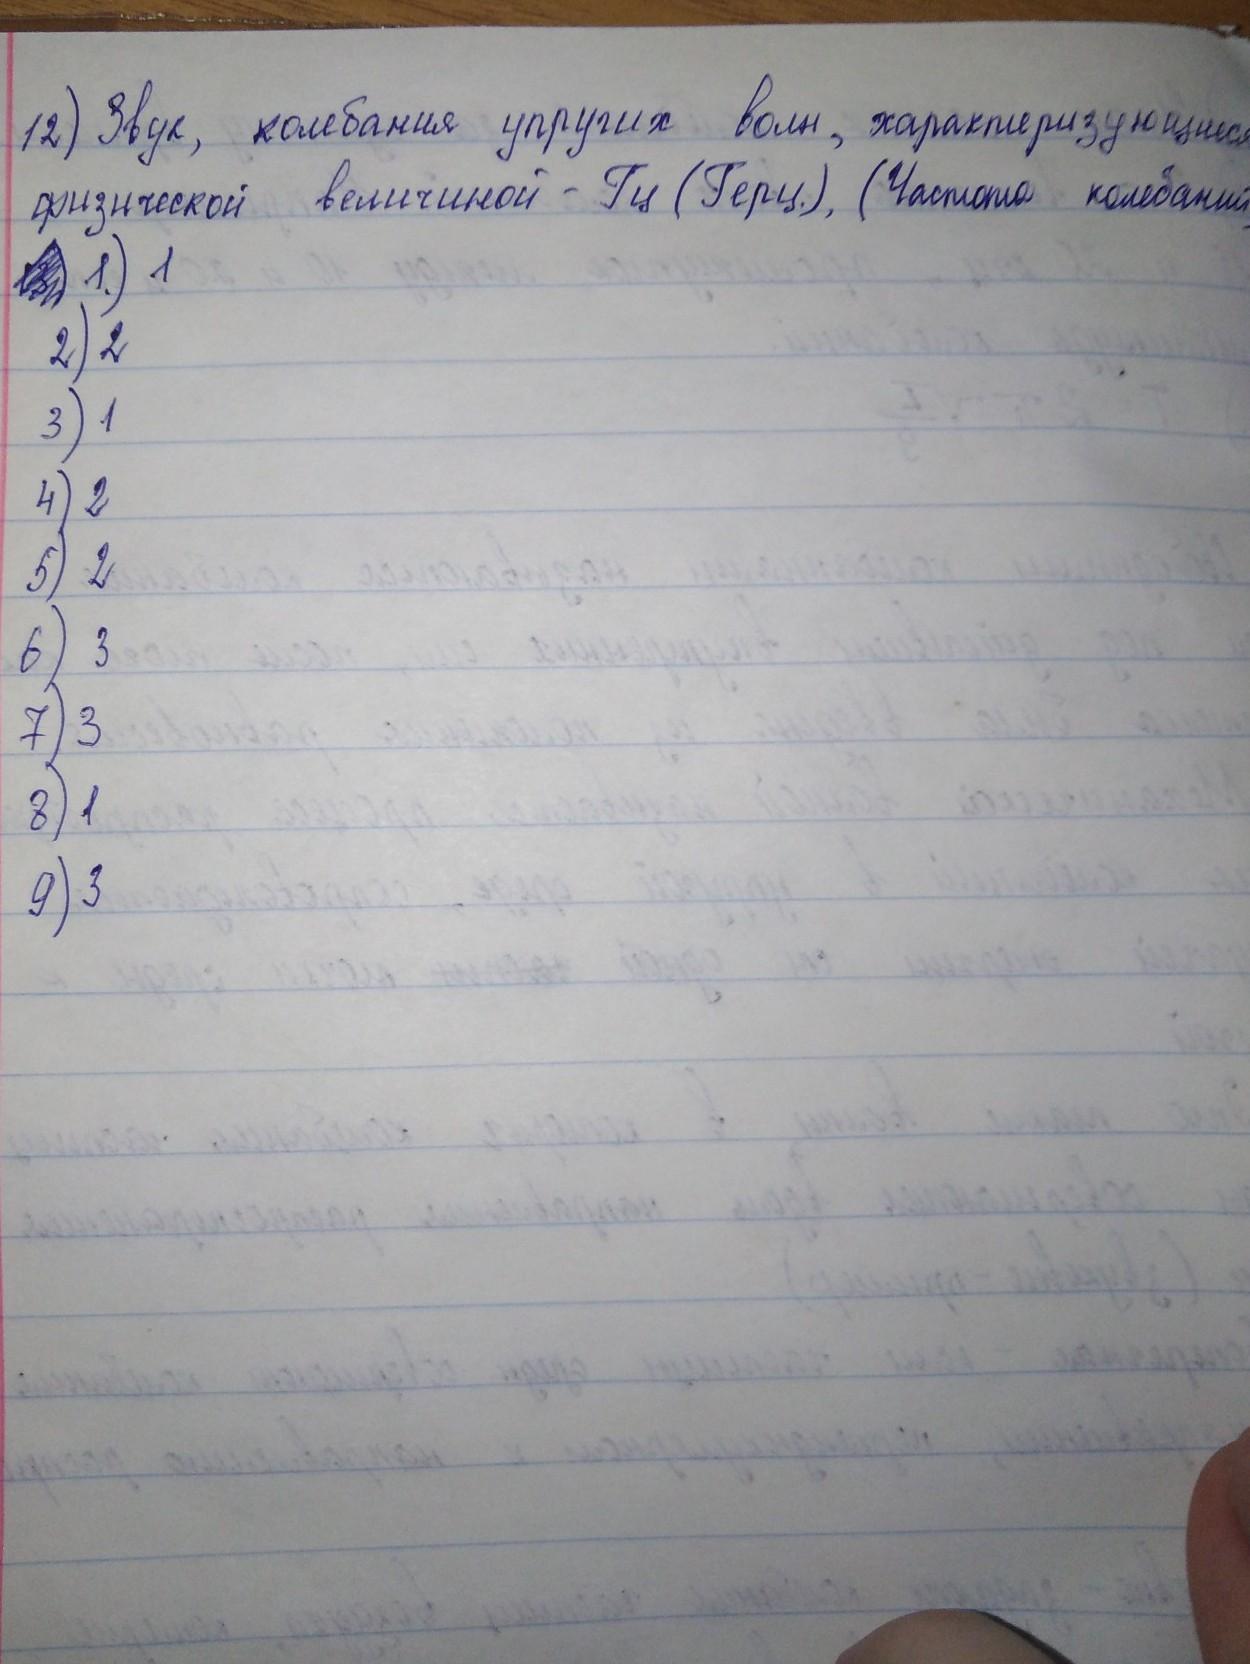 12) Звук, колебания упругих волн, характеризующиеся
физической величиной - Гц (Герц.), (Частота колебаний
1.) 1
2) 2
3) 1
4) 2
5) 2
6) 3
7) 3
8) 1
9) 3